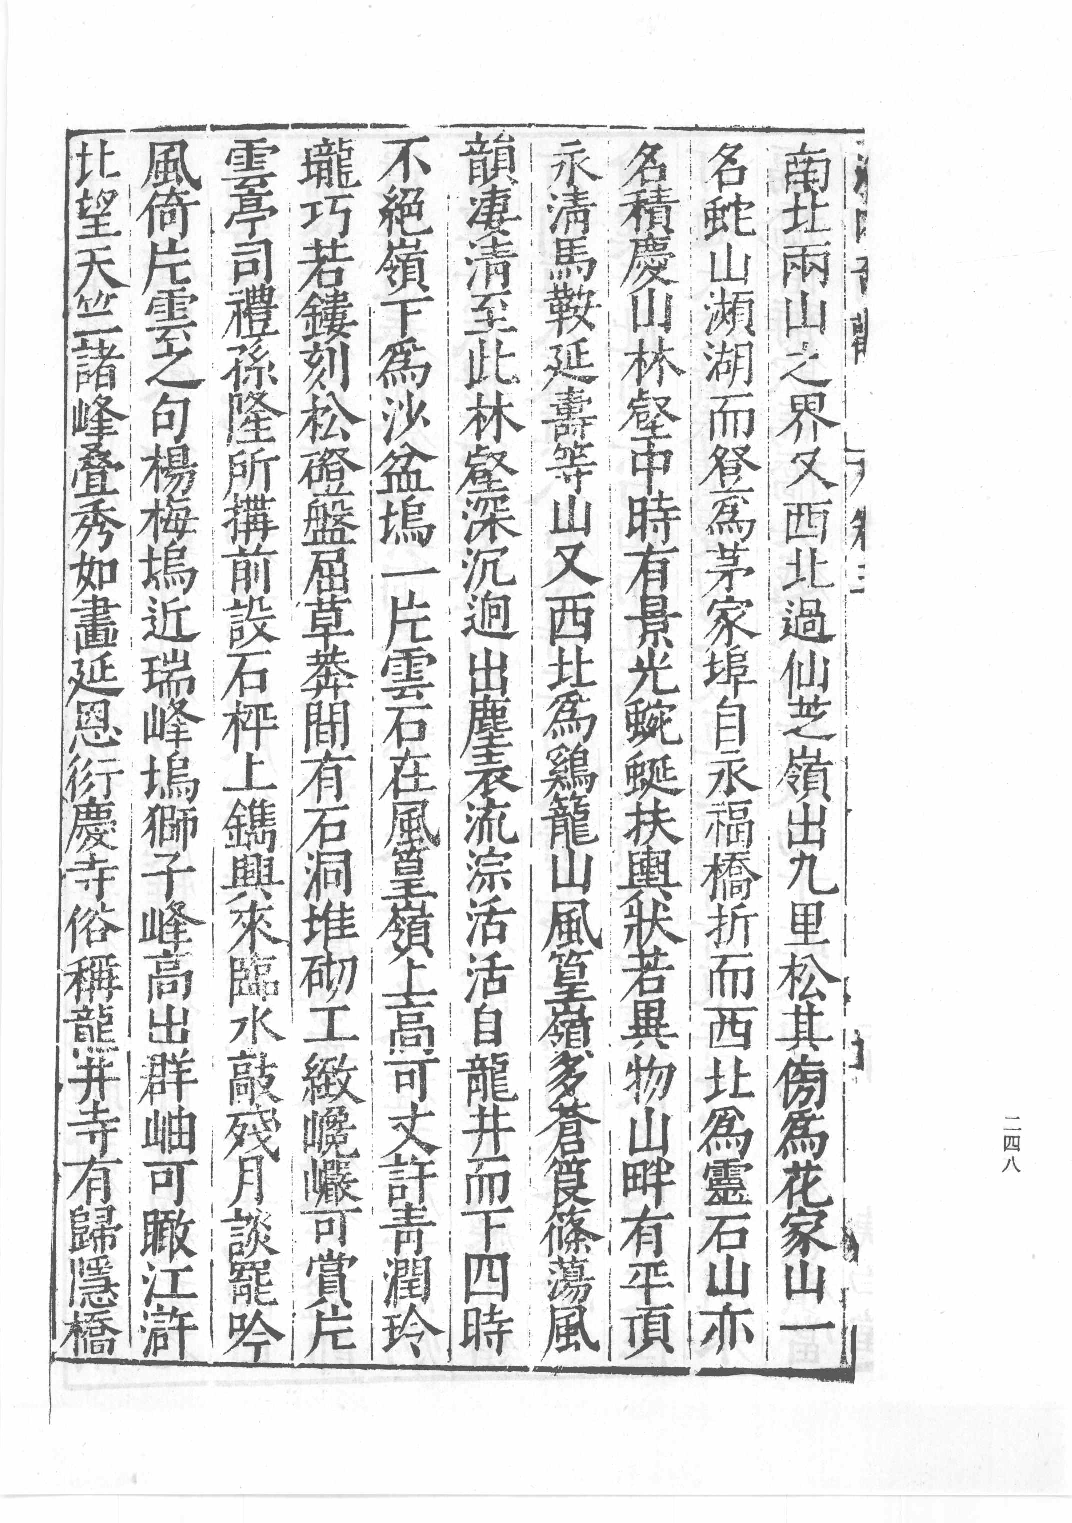 南北兩山之界又西北過仙芝嶺出九里松其傍爲花家山一
名蛇山瀕湖而登爲茅家埠自永福橋折而西北爲靈石山亦
名積慶山林壑中時有景光蜿蜒扶輿狀若異物山畔有平頂
永清馬鞍延壽等山又西北爲鷄籠山風篁嶺多蒼筤篠蕩風
韻凄清至此林壑深沉迥出塵表流淙活活自龍井而下四時
不絕嶺下爲沙盆塢一片雲石在風篁嶺上高可丈許青潤玲
瓏巧若鏤刻松磴盤屈草莽間有石洞堆砌工緻巉巗可賞片
雲亭司禮孫隆所搆前設石枰上鐫興來臨水敲殘月談罷吟
風倚片雲之句楊梅塢近瑞峰塢獅子峰高出群岫可瞰江滸
北望天竺諸峰叠秀如畫延恩衍慶寺俗稱龍井寺有歸隱橋
二四八